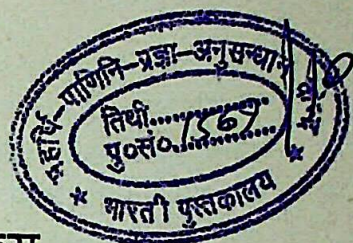 महर्षि-पाणिनि-प्रज्ञा-अनुसन्धान
तिथी............
पु०सं० 1567
भारती पुस्तकालय